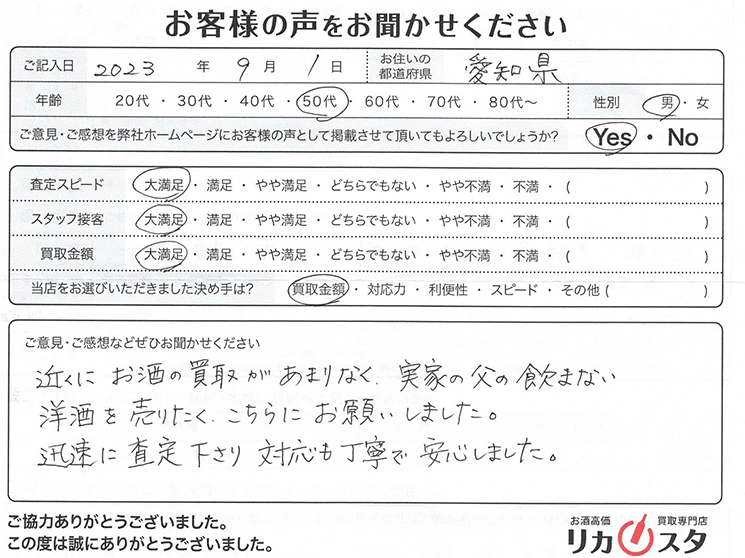 お客様の声をお聞かせください
ご記入日 2023 年 9 月 1 日 お住いの都道府県 愛知県
年齢 20代 ・ 30代 ・ 40代 ・ 50代 ・ 60代 ・ 70代 ・ 80代～ 性別 男 ・ 女
ご意見・ご感想を弊社ホームページにお客様の声として掲載させて頂いてもよろしいでしょうか？ Yes ・ No
査定スピード 大満足 ・ 満足 ・ やや満足 ・ どちらでもない ・ やや不満 ・ 不満 ・ ( )
スタッフ接客 大満足 ・ 満足 ・ やや満足 ・ どちらでもない ・ やや不満 ・ 不満 ・ ( )
買取金額 大満足 ・ 満足 ・ やや満足 ・ どちらでもない ・ やや不満 ・ 不満 ・ ( )
当店をお選びいただきました決め手は？ 買取金額 ・ 対応力 ・ 利便性 ・ スピード ・ その他 ( )
ご意見・ご感想などぜひお聞かせください
近くに お酒の買取が あまりなく、実家の父の飲まない
洋酒を売りたく、こちらに お願いしました。
迅速に 査定下さり 対応も丁寧で 安心しました。
ご協力ありがとうございました。
この度は誠にありがとうございました。
お酒高価 買取専門店
リカスタ